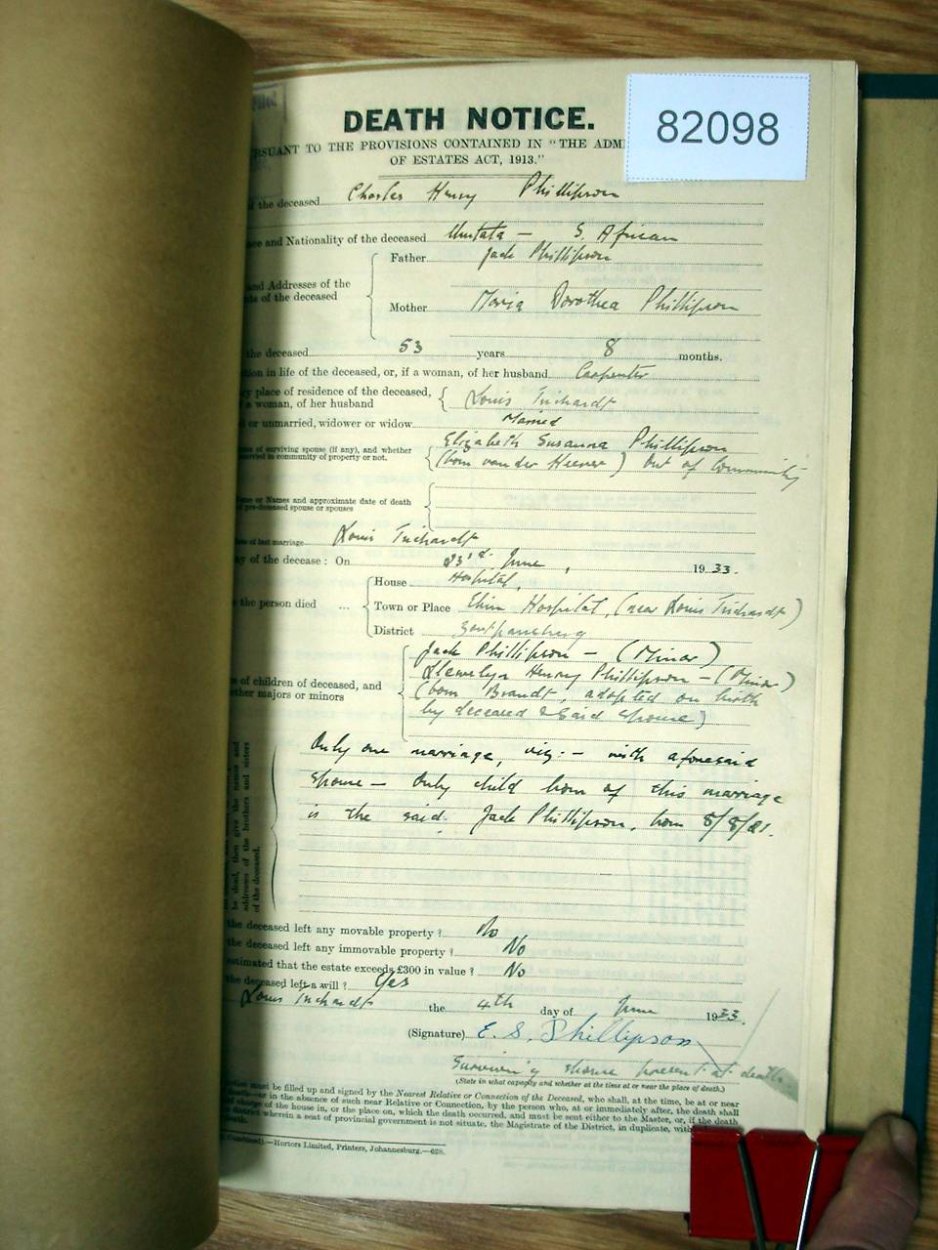 DEATH NOTICE.
82098
RSUANT TO THE PROVISIONS CONTAINED IN "THE ADM
OF ESTATES ACT, 1913."
the deceased Charles Henry Phillipson
and Nationality of the deceased Umtata — S. African
Father Jack Phillipson
and Addresses of the
of the deceased
Mother Maria Dorothea Phillipson
the deceased 53 years 8 months.
tion in life of the deceased, or, if a woman, of her husband Carpenter
y place of residence of the deceased,
a woman, of her husband
Louis Trichardt
or unmarried, widower or widow Married
of surviving spouse (if any), and whether
married in community of property or not.
Elizabeth Susanna Phillipson
(born van der Heever) out of Community
or Names and approximate date of death
pre-deceased spouse or spouses
of last marriage Louis Trichardt
y of the decease : On 23rd June, 1933.
House Hospital,
the person died ... Town or Place Elim Hospital, (near Louis Trichardt)
District Zoutpansberg
s of children of deceased, and
ther majors or minors
Jack Phillipson — (Minor)
Llewelyn Henry Phillipson — (Minor)
(born Brandt, adopted on birth
by deceased & said spouse)
Only one marriage, viz: — with aforesaid
spouse — Only child born of this marriage
is the said Jack Phillipson, born 8/8/21.
be dead, then give the names and
addresses of the brothers and sisters
of the deceased.
the deceased left any movable property ? No
the deceased left any immovable property ? No
estimated that the estate exceeds £300 in value ? No
the deceased left a will ? Yes
Louis Trichardt the 4th day of June 1933.
(Signature) E. S. Phillipson
Surviving spouse present at death.
(State in what capacity and whether at the time at or near the place of death.)
must be filled up and signed by the Nearest Relative or Connection of the Deceased, who shall, at the time, be at or near
or in the absence of such near Relative or Connection, by the person who, at or immediately after, the death shall
charge of the house in, or the place on, which the death occurred, and must be sent either to the Master, or, if the death
district wherein a seat of provincial government is not situate, the Magistrate of the District, in duplicate, with
death.
Combined).—Hortors Limited, Printers, Johannesburg.—628.